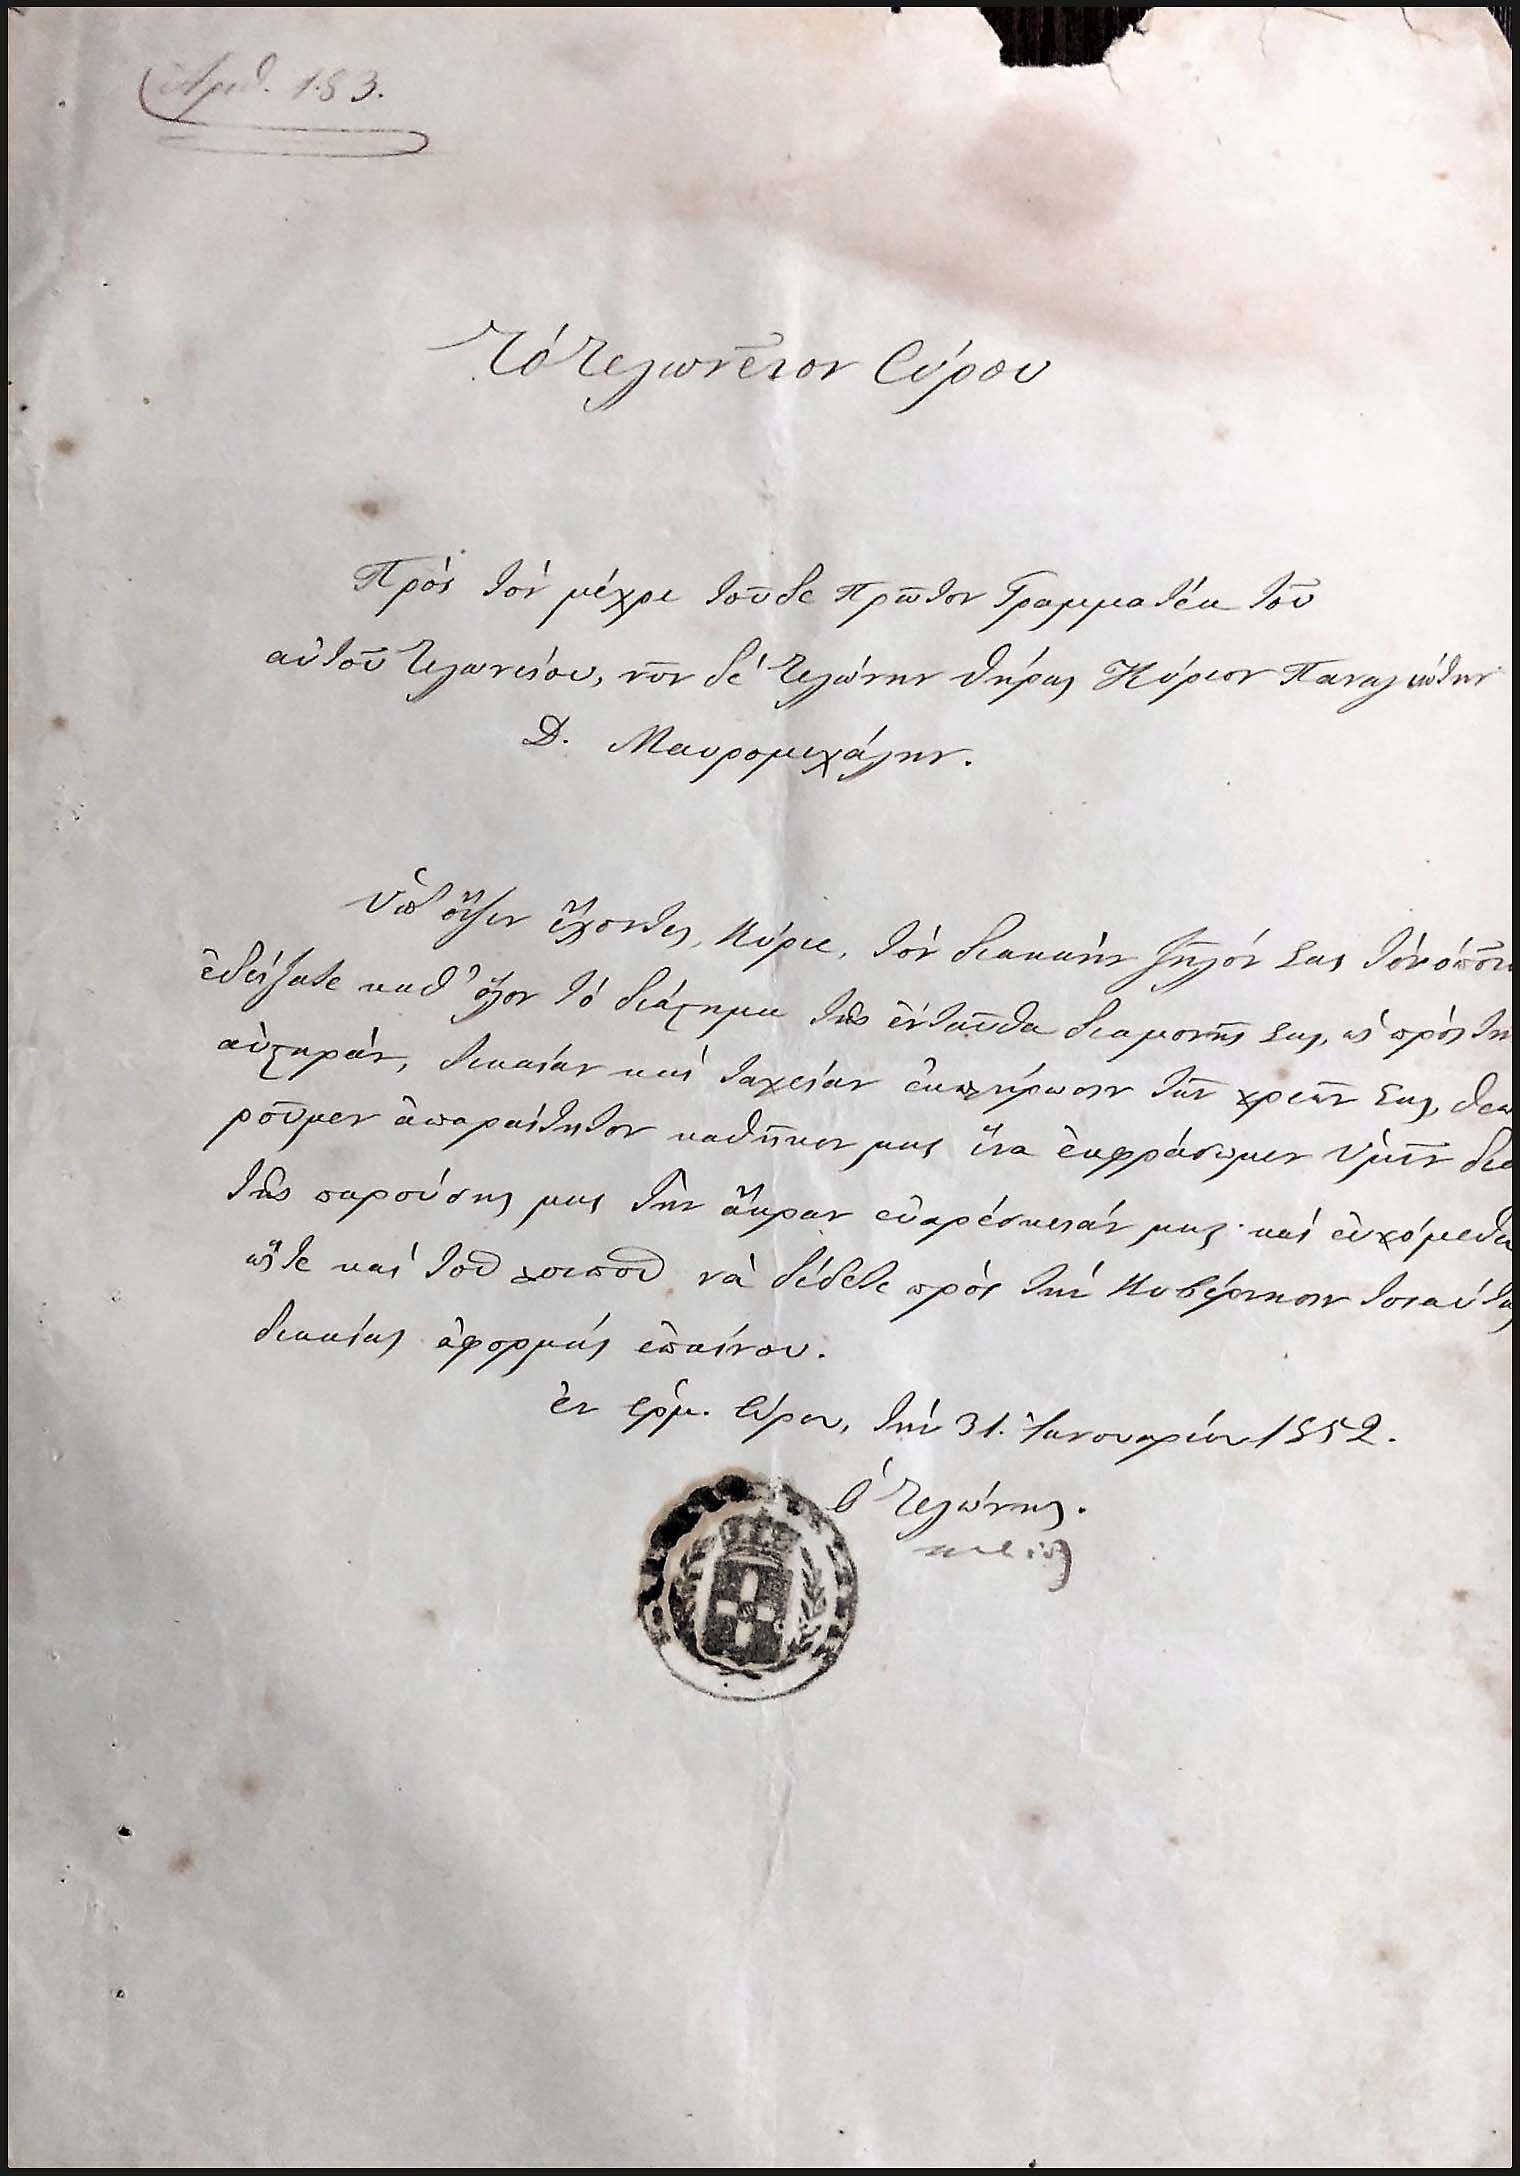 Ἀριθ. 183.
Τό Τελωνεῖον Σύρου
Πρός τόν μέχρι τοῦδε Πρῶτον Γραμματέα τοῦ
αὐτοῦ Τελωνείου, νῦν δέ Τελώνην Θήρας Κύριον Παναγιώτην
Δ. Μαυρομιχάλην.
Ὑπ' ὄψιν ἔχοντες, Κύριε, τόν διακαῆ ζῆλόν σας τόν ὁποῖον
ἐδείξατε καθ' ὅλον τό διάστημα τῆς ἐνταῦθα διαμονῆς σας, ὡς πρός τήν
αὐστηράν, δικαίαν καί ταχείαν ἐκπλήρωσιν τῶν χρεῶν σας, θεω
ροῦμεν ἀπαραίτητον καθῆκον μας ἵνα ἐκφράσωμεν ὑμῖν διά
τῆς παρούσης μας τήν ἄκραν εὐαρέσκειάν μας· καί εὐχόμεθα
ὥστε καί τοῦ λοιποῦ νά δίδετε πρός τήν Κυβέρνησιν τοιαύτας
δικαίας ἀφορμάς ἐπαίνου.
ἐν Ἑρμ. Σύρου, τήν 31. Ἰανουαρίου 1852.
Ὁ Τελώνης.